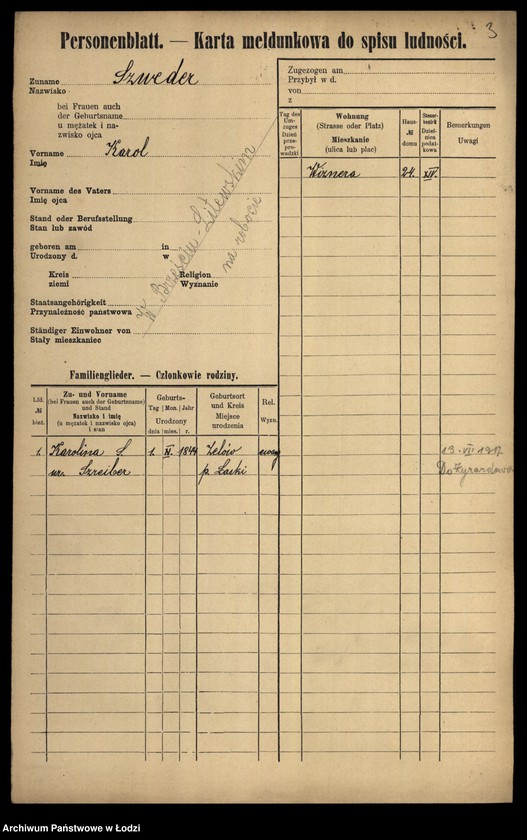 3
Personenblatt. — Karta meldunkowa do spisu ludności.
Zuname Szweder
Nazwisko
bei Frauen auch
der Geburtsname
u mężatek i na-
zwisko ojca
Vorname Karol
Imię
Vorname des Vaters
Imię ojca
Stand oder Berufsstellung
Stan lub zawód
geboren am in
Urodzony d. w
Kreis Religion
ziemi Wyznanie
Staatsangehörigkeit
Przynależność państwowa
Ständiger Einwohner von
Stały mieszkaniec
W Brześciu-Litewskim
na robocie
Zugezogen am
Przybył w d.
von
z
Tag des Um-zuges Dzień prze-pro-wadzki
Wohnung (Strasse oder Platz) Mieszkanie (ulica lub plac)
Haus- № domu
Steuer-bezirk Dziel-nica podat-kowa
Bemerkungen Uwagi
Wiznera 24. XIV.
Familienglieder. — Członkowie rodziny.
Lfd. № bież.
Zu- und Vorname (bei Frauen auch der Geburtsname) und Stand Nazwisko i imię (u mężatek i nazwisko ojca) i stan
Geburts- Tag Mon. Jahr Urodzony dnia mies. r.
Geburtsort und Kreis Miejsce urodzenia
Rel. Wyzn.
1. Karolina S 1. 1844 Zelów ewang 13.VII 1917
ur. Szreiber p. Łaski Do Żyrardowa
Archiwum Państwowe w Łodzi